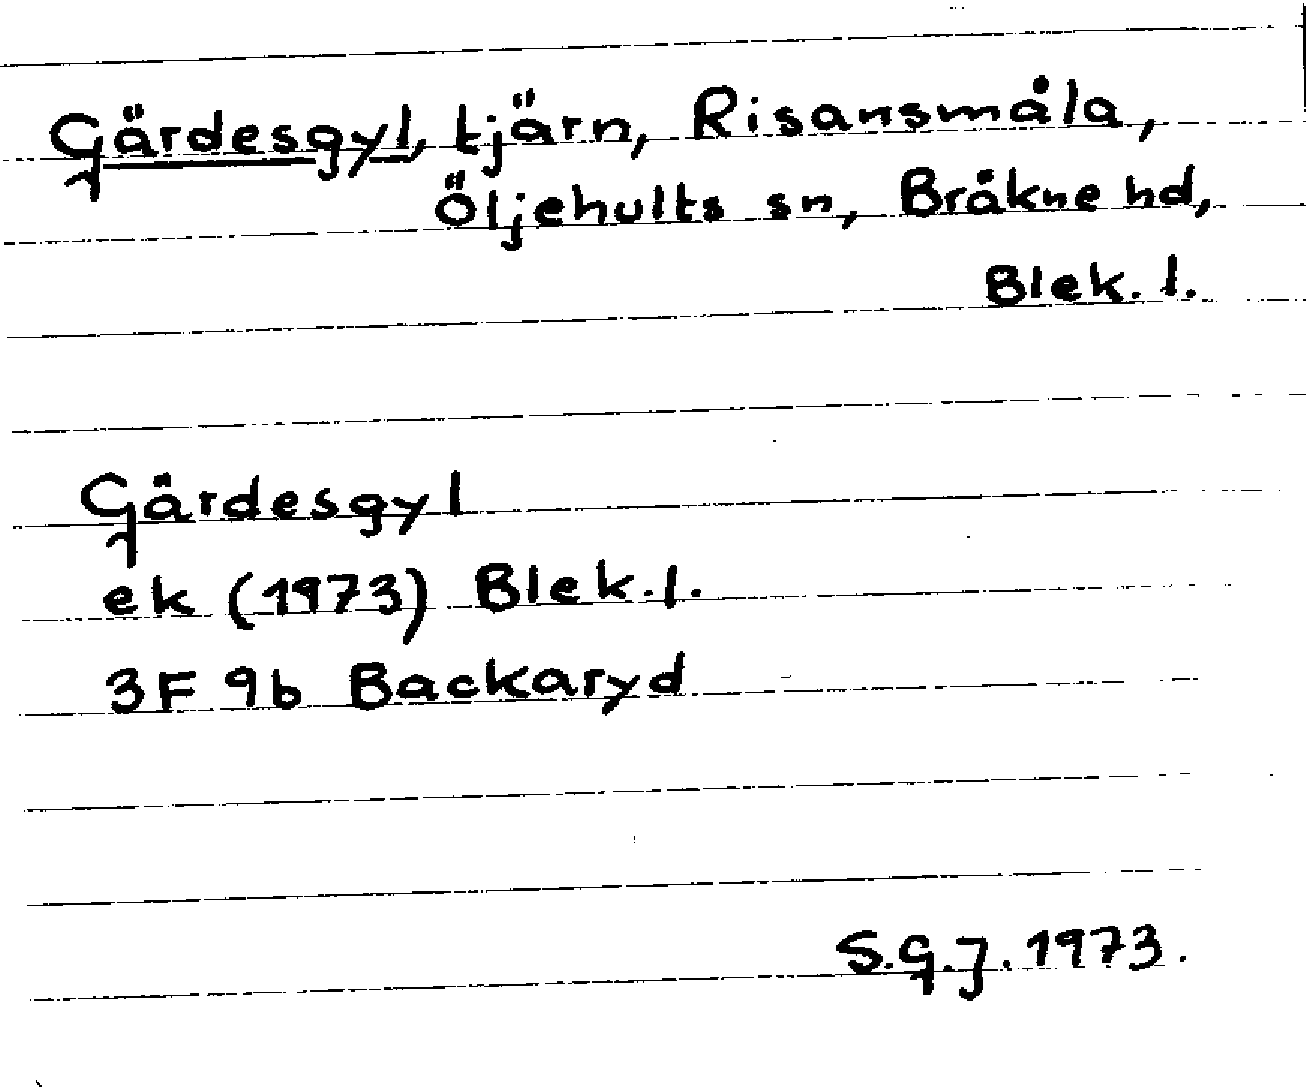 Gärdesgyl, tjärn, Risansmåla,
Öljehults sn, Bräkne hd,
Blek. l.
Gärdesgyl
ek (1973) Blek. l.
3F 9b Backaryd
S.G.J. 1973.